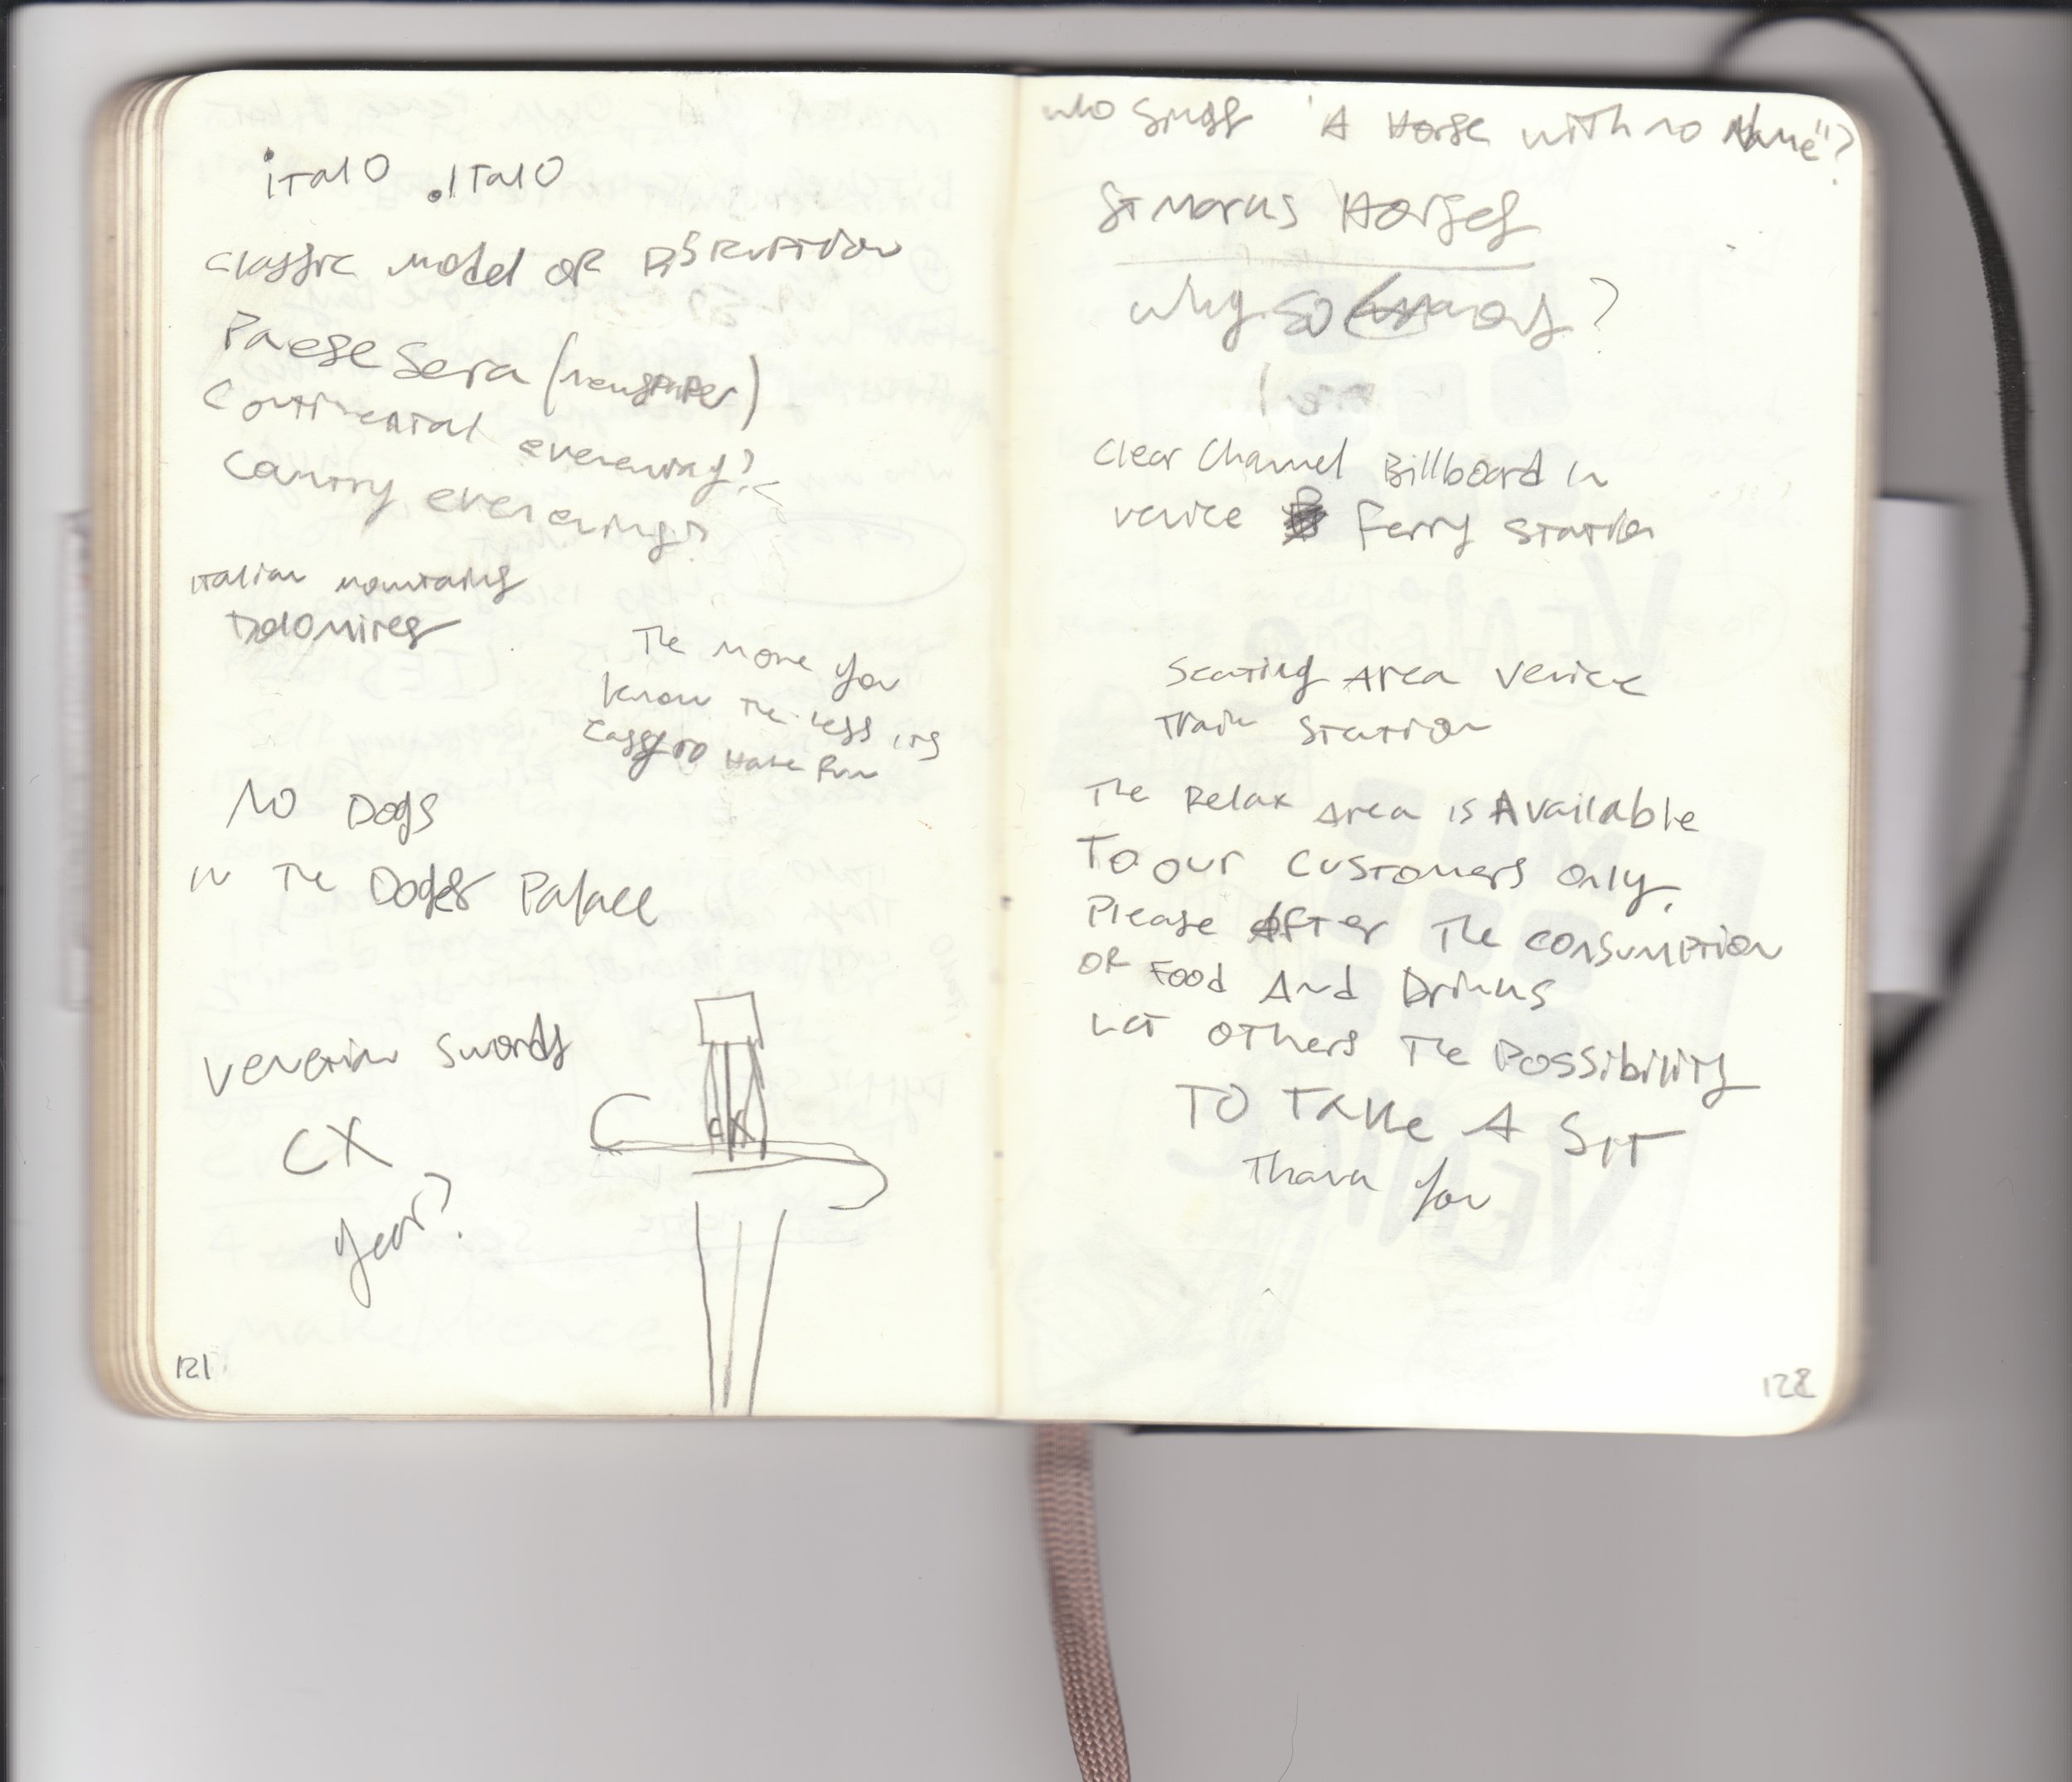 italo .italo
Classic model of Distribution
Paese Sera (newspaper)
Continental evenening?
Country evenenings
Italian mountains
Dolomites
The more you
know the less its
Easy to Have Fun
No Dogs
in the Doges Palace
Venetian Swords
CX
year?
C
CX
121
who sings 'A Horse with no Name"?
St Marks Horses
why so
Clear Channel Billboard in
Venice Ferry Station
Seating Area Venice
Train Station
The Relax Area is Available
To our customers only.
Please After The consumption
OF Food And Drinks
Let others The Possibility
TO TAKE A SIT
Thank you
122